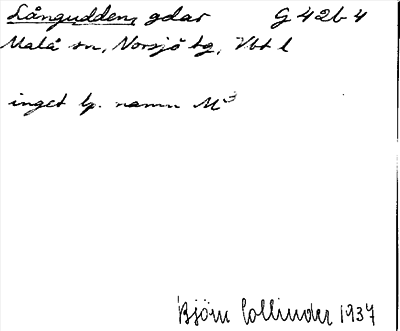 Långuddens gdar G 42b 4
Malå sn, Norsjö tg, Vbt l
inget lp. namn M³
Björn Collinder 1937